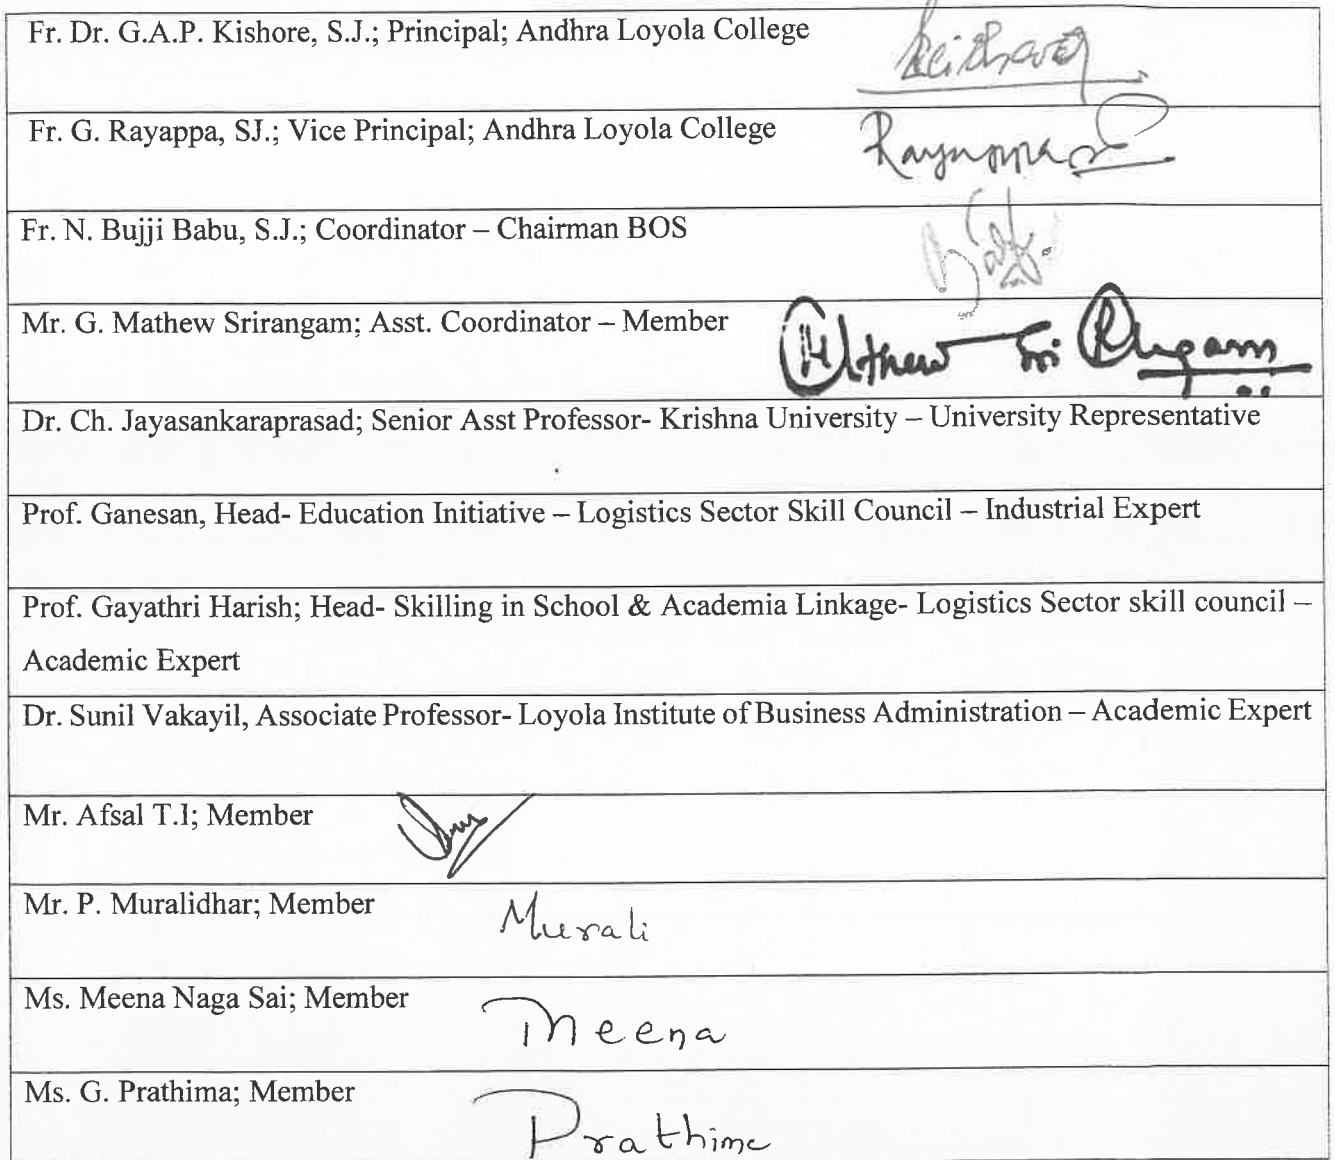 Fr. Dr. G.A.P. Kishore, S.J.; Principal; Andhra Loyola College
Fr. G. Rayappa, SJ.; Vice Principal; Andhra Loyola College
Rayappa
Fr. N. Bujji Babu, S.J.; Coordinator – Chairman BOS
Mr. G. Mathew Srirangam; Asst. Coordinator – Member
Mathew Sri Rangam
Dr. Ch. Jayasankaraprasad; Senior Asst Professor- Krishna University – University Representative
Prof. Ganesan, Head- Education Initiative – Logistics Sector Skill Council – Industrial Expert
Prof. Gayathri Harish; Head- Skilling in School & Academia Linkage- Logistics Sector skill council –
Academic Expert
Dr. Sunil Vakayil, Associate Professor- Loyola Institute of Business Administration – Academic Expert
Mr. Afsal T.I; Member
Mr. P. Muralidhar; Member
Murali
Ms. Meena Naga Sai; Member
Meena
Ms. G. Prathima; Member
Prathima